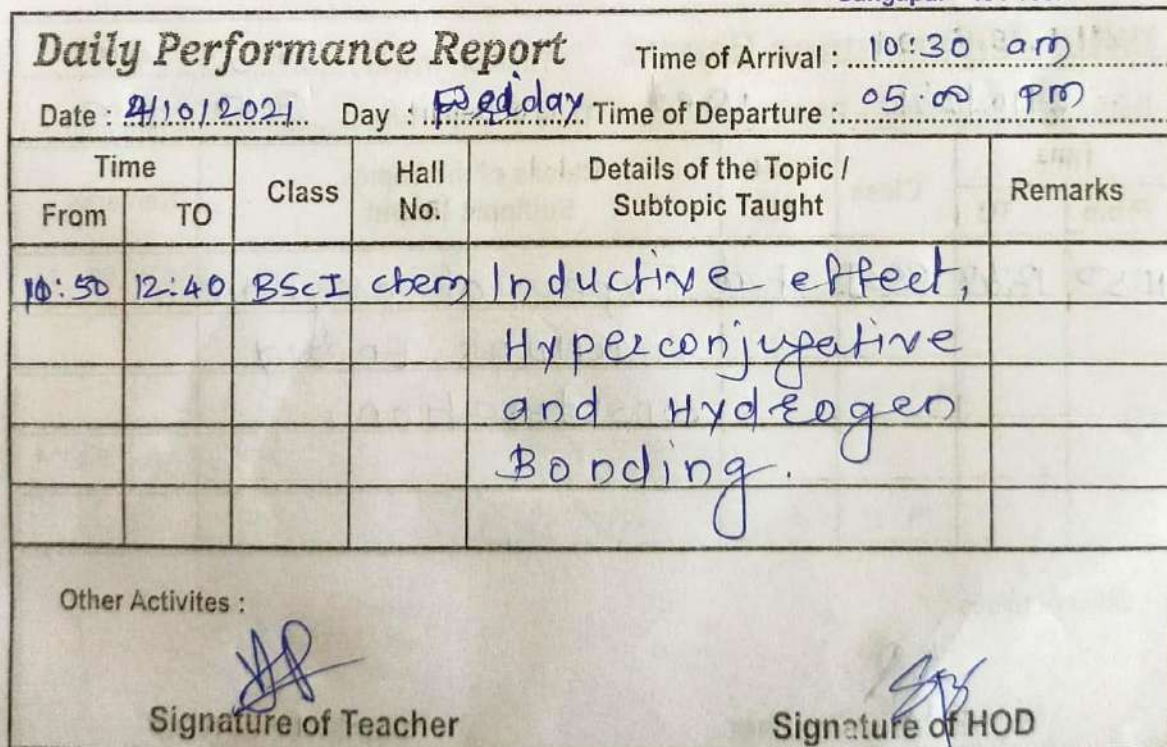 Daily Performance Report Time of Arrival : 10:30 am
Date : /10/2021 Day : Time of Departure : 05:00 PM
Time Class Hall No. Details of the Topic / Subtopic Taught Remarks
From TO
10:50 12:40 BSc I chem Inductive effect,
Hyperconjugative
and Hydrogen
Bonding.
Other Activites :
Signature of Teacher Signature of HOD